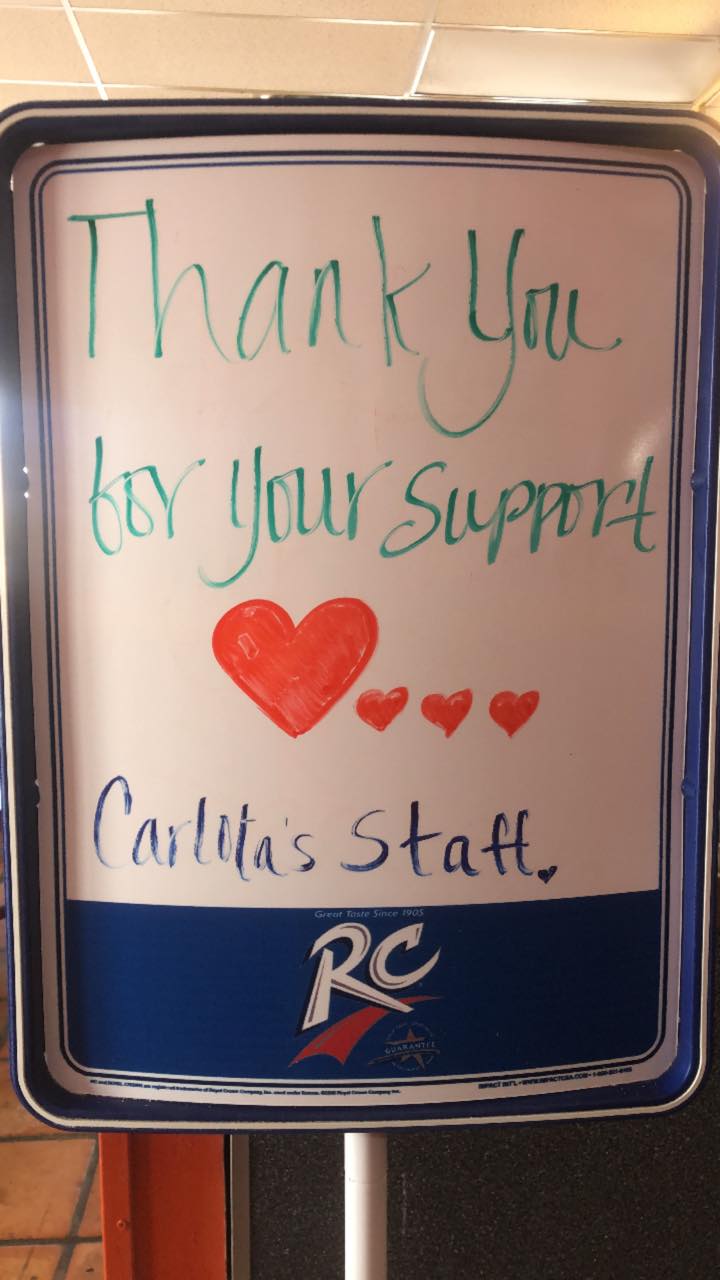 Thank You
for your Support
Carlota's Staff
Great Taste Since 1905
RC
GUARANTEE